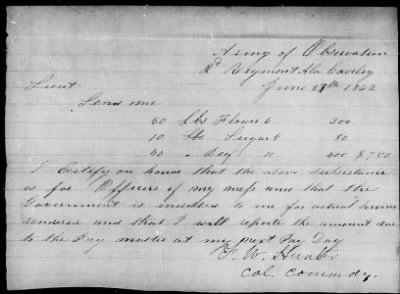 Army of Observation
2d Regiment Ala Cavelry
June 27th 1862
Lieut
Send me
50 lbs Flower 6 300
10 lbs Sugar 8 80
40 " Beef 10 400 $7.80
I Certify on honor that the above subsistance
is for Officers of my mess and that the
Government is indebted to me for actual Services
rendered and that I will reporte the amount due
to the Pay master at my next Pay Day
F. W. Hunter
Col. Commdg.